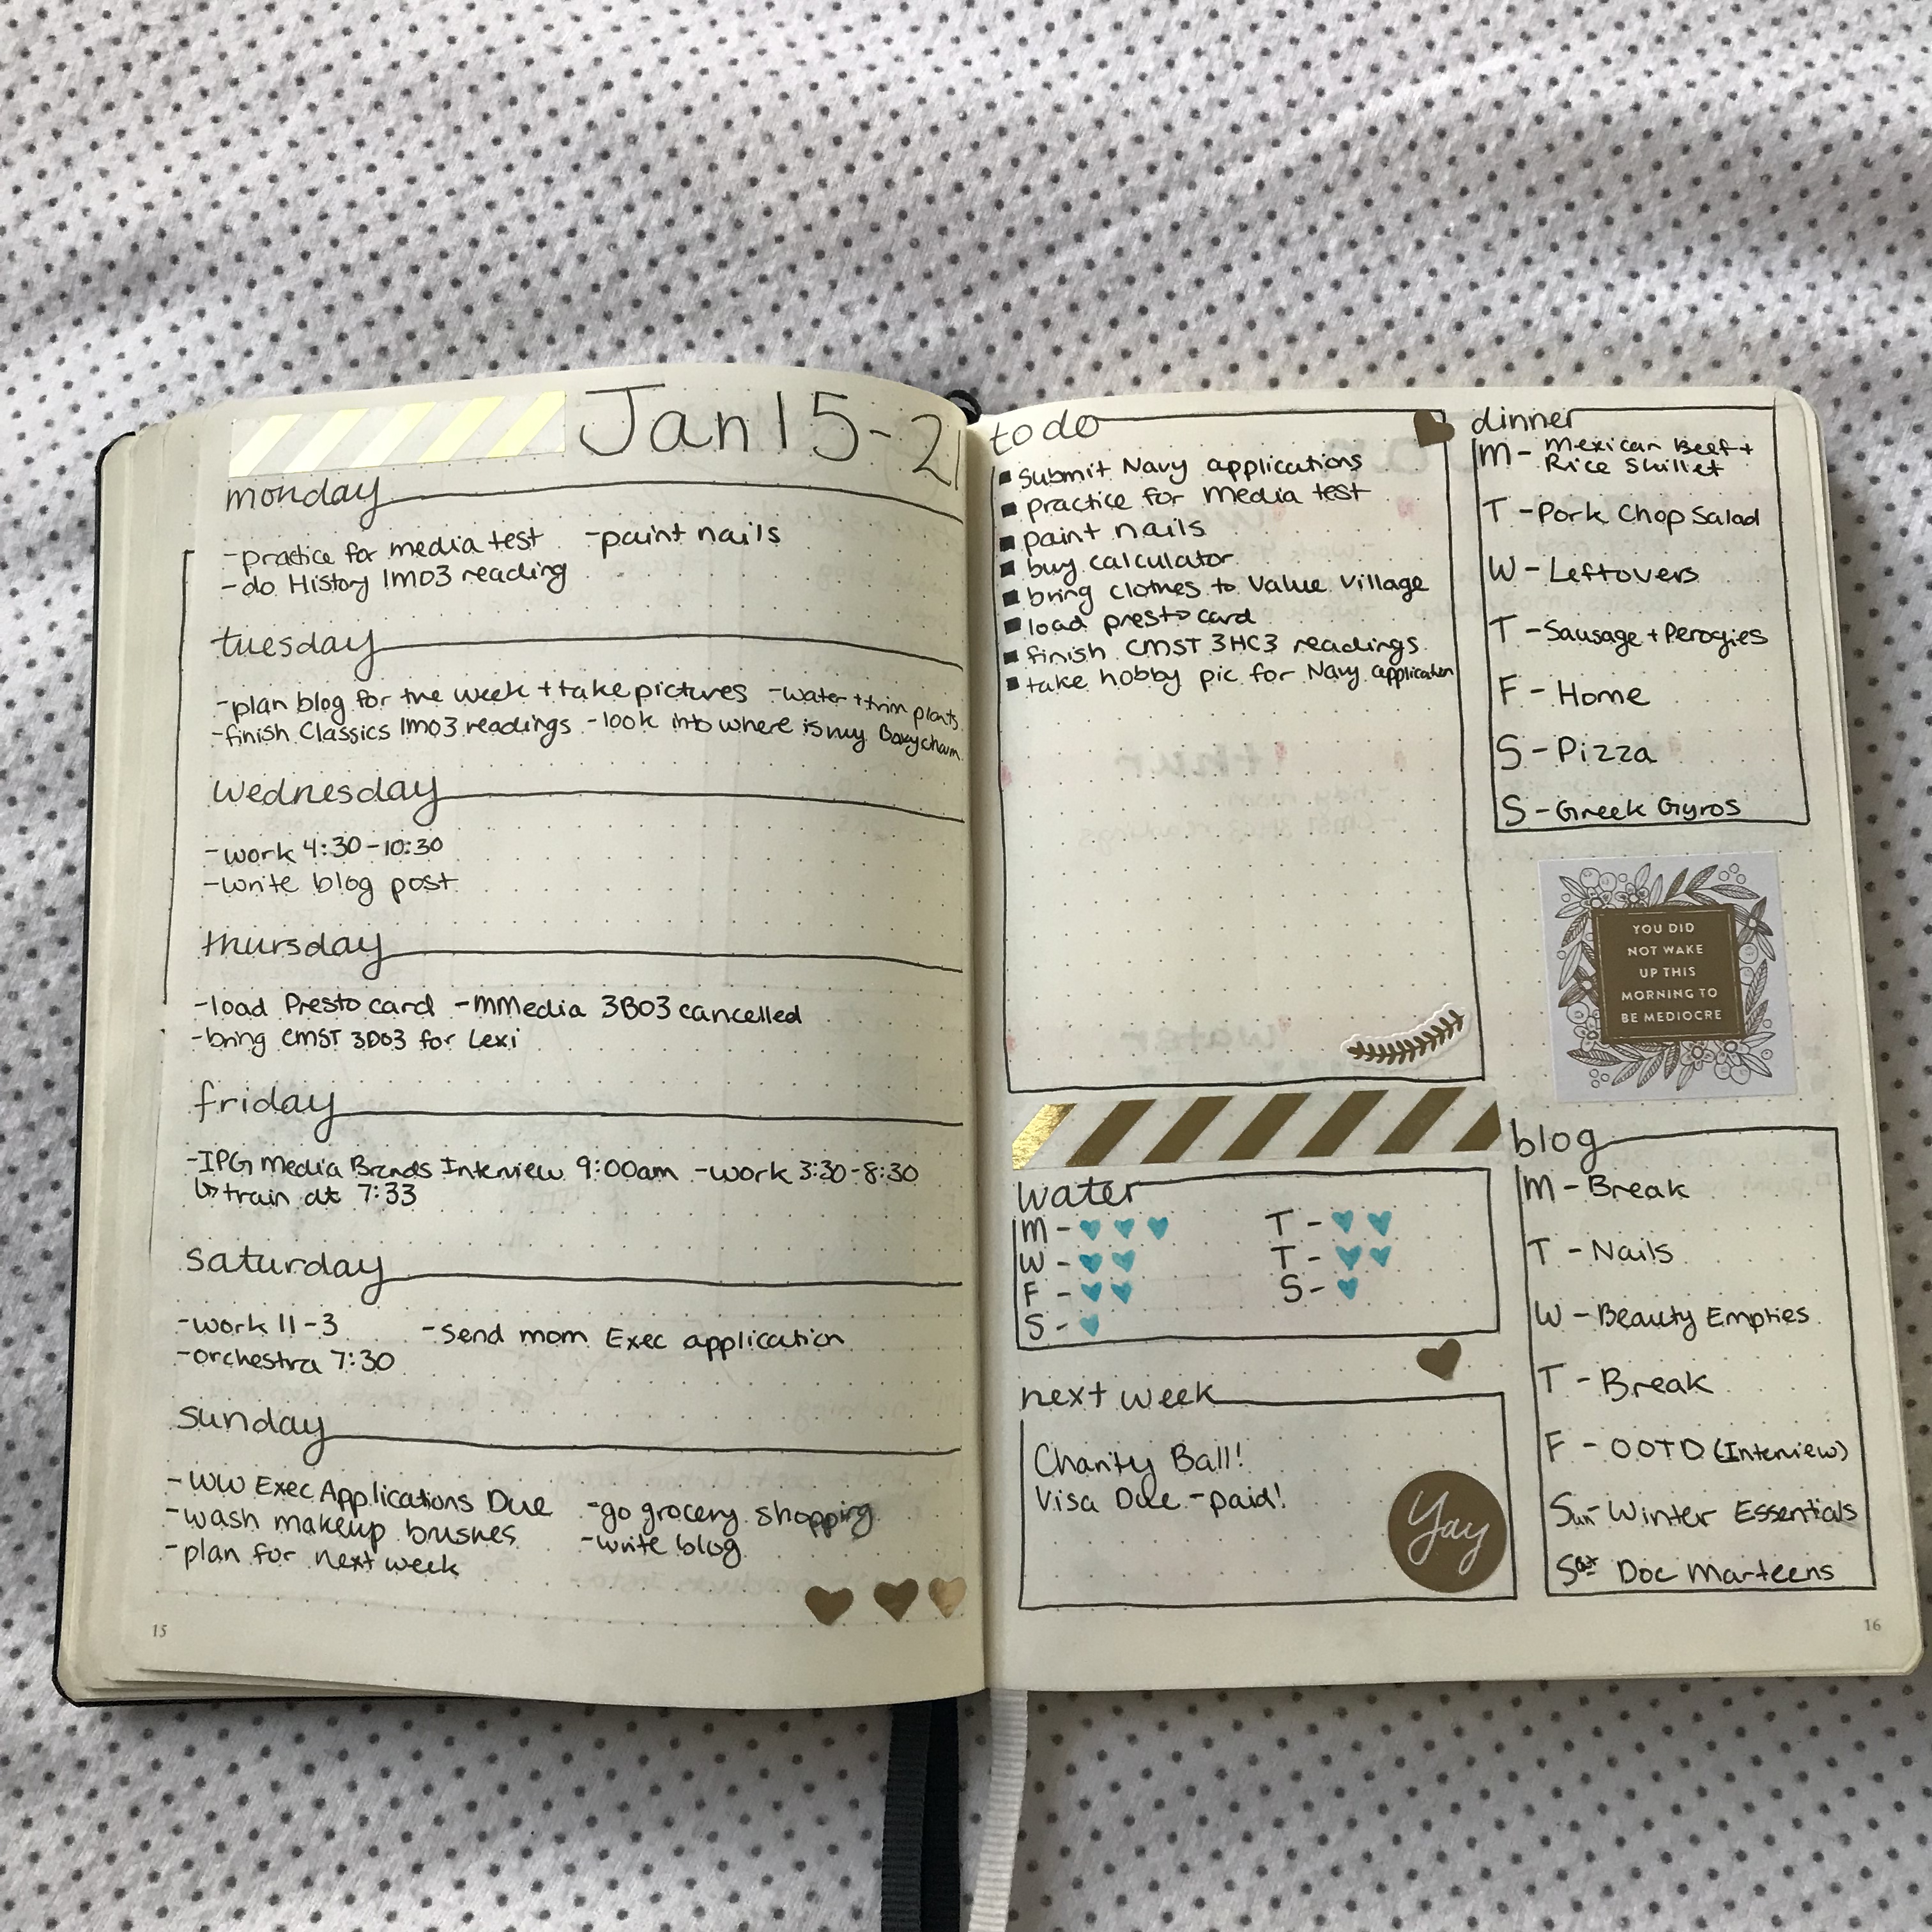 Jan 15-21
monday
-practice for media test -paint nails
-do History 1M03 reading
tuesday
-plan blog for the week + take pictures -water + trim plants
-finish Classics 1M03 readings -look into where is my Boxycharm
wednesday
-work 4:30-10:30
-write blog post
thursday
-load Presto card -MMedia 3B03 cancelled
-bring CMST 3D03 for Lexi
friday
-IPG Media Brands Interview 9:00am -work 3:30-8:30
↳ train at 7:33
saturday
-work 11-3 -send mom Exec application
-orchestra 7:30
sunday
-WW Exec Applications Due -go grocery shopping
-wash makeup brushes -write blog
-plan for next week
15
to do
submit Navy applications
practice for media test
paint nails
buy calculator
bring clothes to Value Village
load presto card
finish CMST 3HC3 readings
take hobby pic for Navy application
dinner
M- Mexican Beef +
Rice Skillet
T -Pork Chop Salad
W -Leftovers
T -Sausage + Perogies
F - Home
S - Pizza
S -Greek Gyros
YOU DID
NOT WAKE
UP THIS
MORNING TO
BE MEDIOCRE
water
M - T -
W - T -
F - S -
S -
next week
Charity Ball!
Visa Due -paid!
Yay
blog
M - Break
T - Nails
W - Beauty Empties
T - Break
F - OOTD (Interview)
Sun- Winter Essentials
Sat Doc Marteens
16